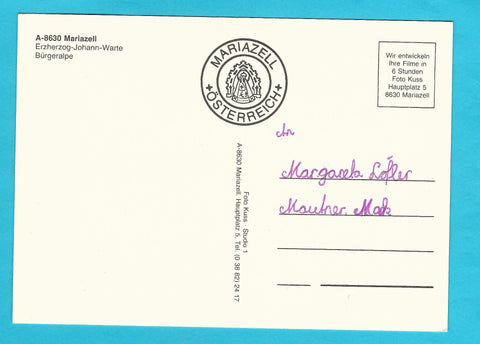 A-8630 Mariazell
Erzherzog-Johann-Warte
Bürgeralpe
MARIAZELL
+ÖSTERREICH+
Wir entwickeln
Ihre Filme in
6 Stunden
Foto Kuss
Hauptplatz 5
8630 Mariazell
An
Margareta Löfler
Mautner
Foto Kuss · Studio 1
A-8630 Mariazell, Hauptplatz 5, Tel. (0 38 82) 24 17